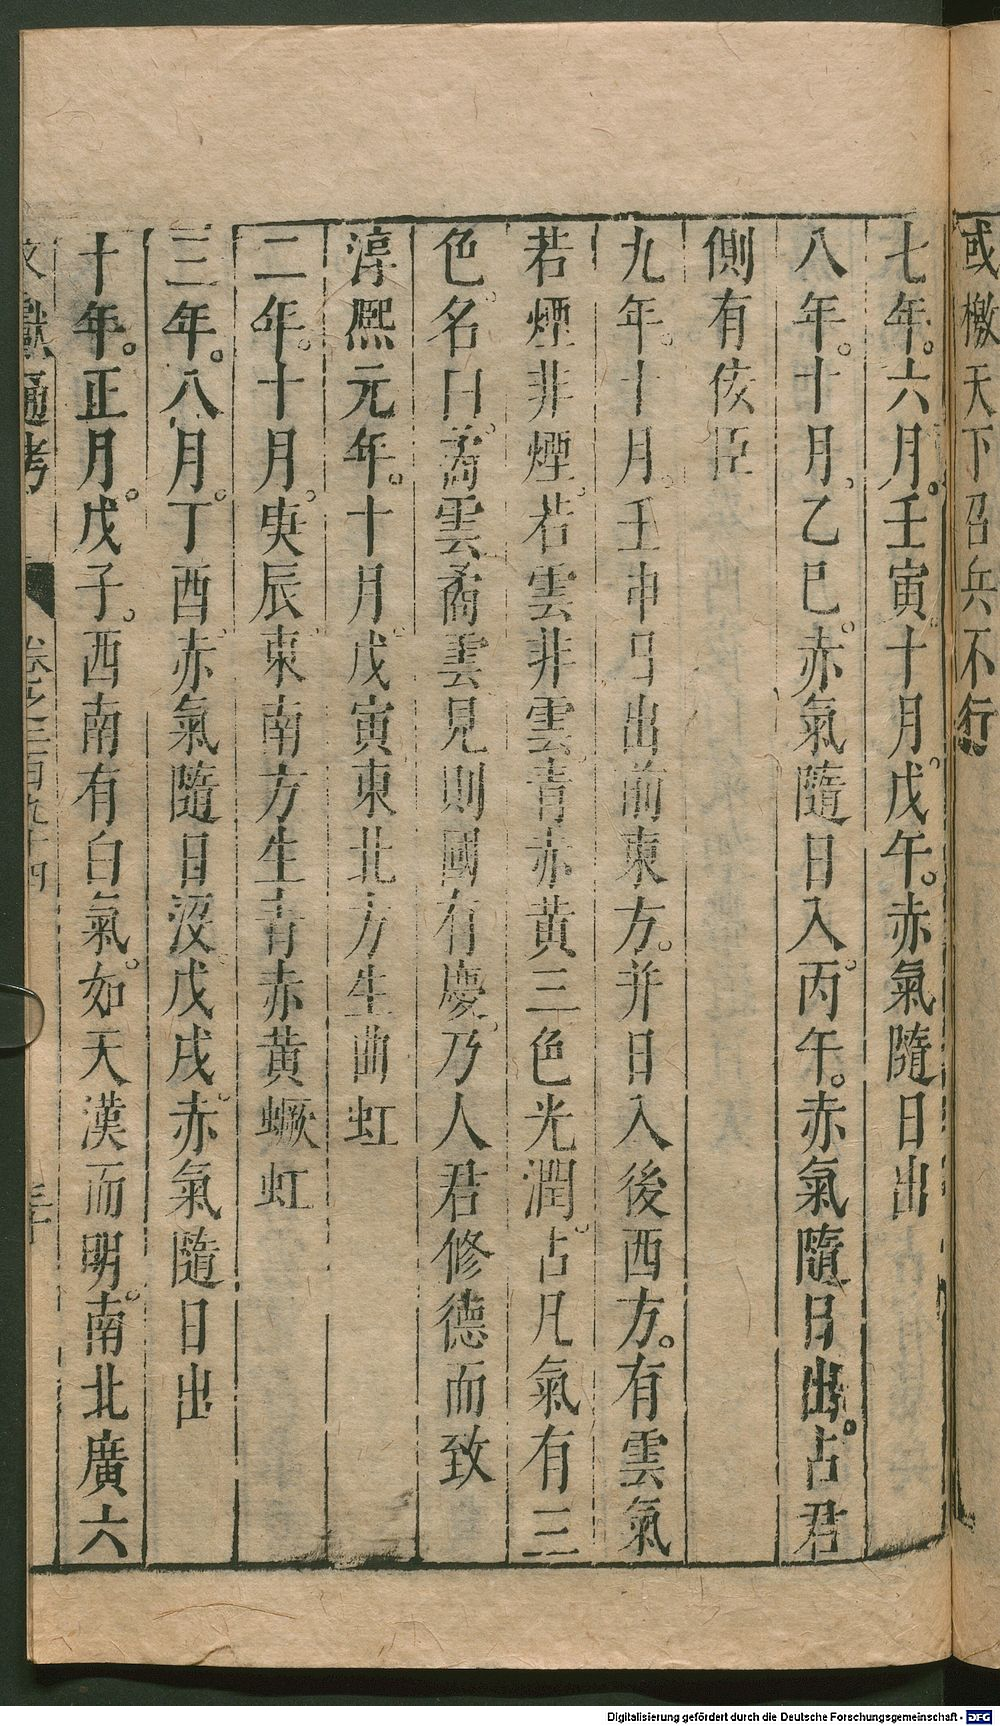 或檄天下召兵不行
七年。六月。壬寅。十月。戊午。赤氣隨日出
八年。十月。乙巳。赤氣隨日入。丙午。赤氣隨日出。占君
側有佞臣
九年。十月。壬申日出前東方。并日入後西方。有雲氣
若煙非煙。若雲非雲。青赤黃三色光潤。占凡氣有三
色。名曰。矞雲矞雲見則國有慶。乃人君修德而致
淳熈元年。十月。戊寅東北方生曲虹
二年。十月。庚辰。東南方生青赤黃蟩虹
三年。八月。丁酉。赤氣隨日沒。戊戌。赤氣隨日出
十年。正月。戊子。西南有白氣。如天漢而明。南北廣六
文獻通考 卷之二百九十四 三十
Digitalisierung gefördert durch die Deutsche Forschungsgemeinschaft - DFG